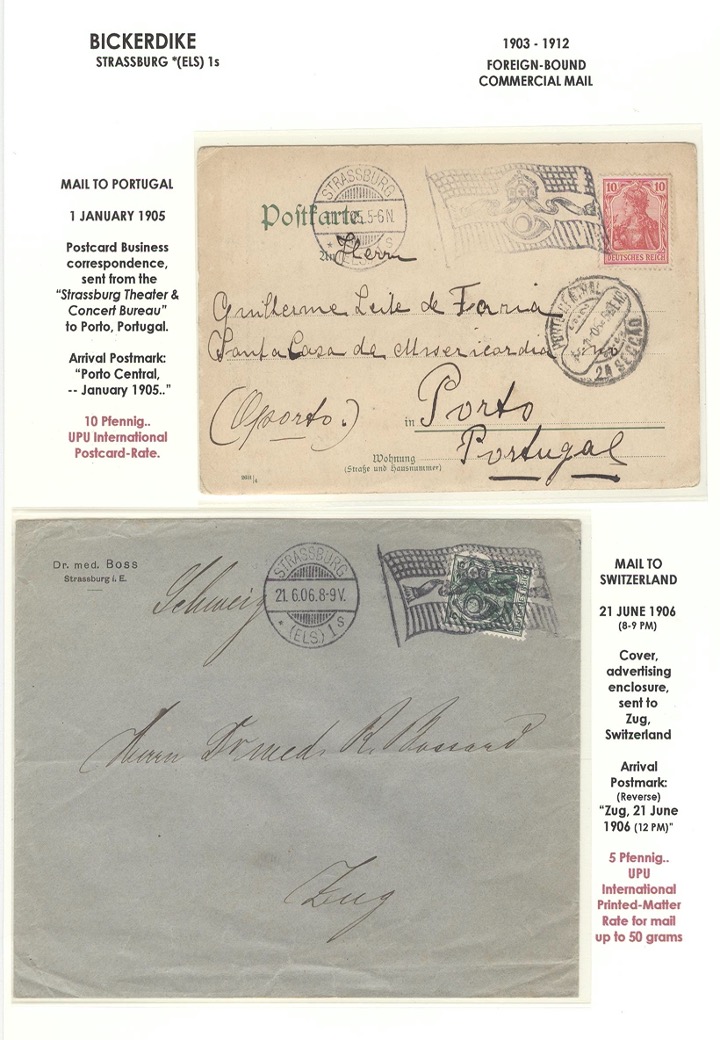 BICKERDIKE
STRASSBURG *(ELS) 1s
1903 - 1912
FOREIGN-BOUND
COMMERCIAL MAIL
MAIL TO PORTUGAL
1 JANUARY 1905
Postcard Business
correspondence,
sent from the
“Strasburg Theater &
Concert Bureau”
to Porto, Portugal.
Arrival Postmark:
“Porto Central,
-- January 1905..”
10 Pfennig..
UPU International
Postcard-Rate.
STRASSBURG
5-6N
* (ELS.) 1s
10 10
DEUTSCHES REICH
Postkarte
An Herrn
Guilherme Leite de Faria
Santa Casa de Misericordia
PORTO CENTRAL
2A SECÇÃO
(Oporto.)
in Porto
Portugal
Wohnung
(Straße und Hausnummer)
Dr. med. Boss
Strassburg i. E.
Schweiz
STRASSBURG
21.6.06.8-9V.
* (ELS.) 1s
Herrn Dr med. R. Bossard
Zug
MAIL TO
SWITZERLAND
21 JUNE 1906
(8-9 PM)
Cover,
advertising
enclosure,
sent to
Zug,
Switzerland
Arrival
Postmark:
(Reverse)
“Zug, 21 June
1906 (12 PM)”
5 Pfennig..
UPU
International
Printed-Matter
Rate for mail
up to 50 grams